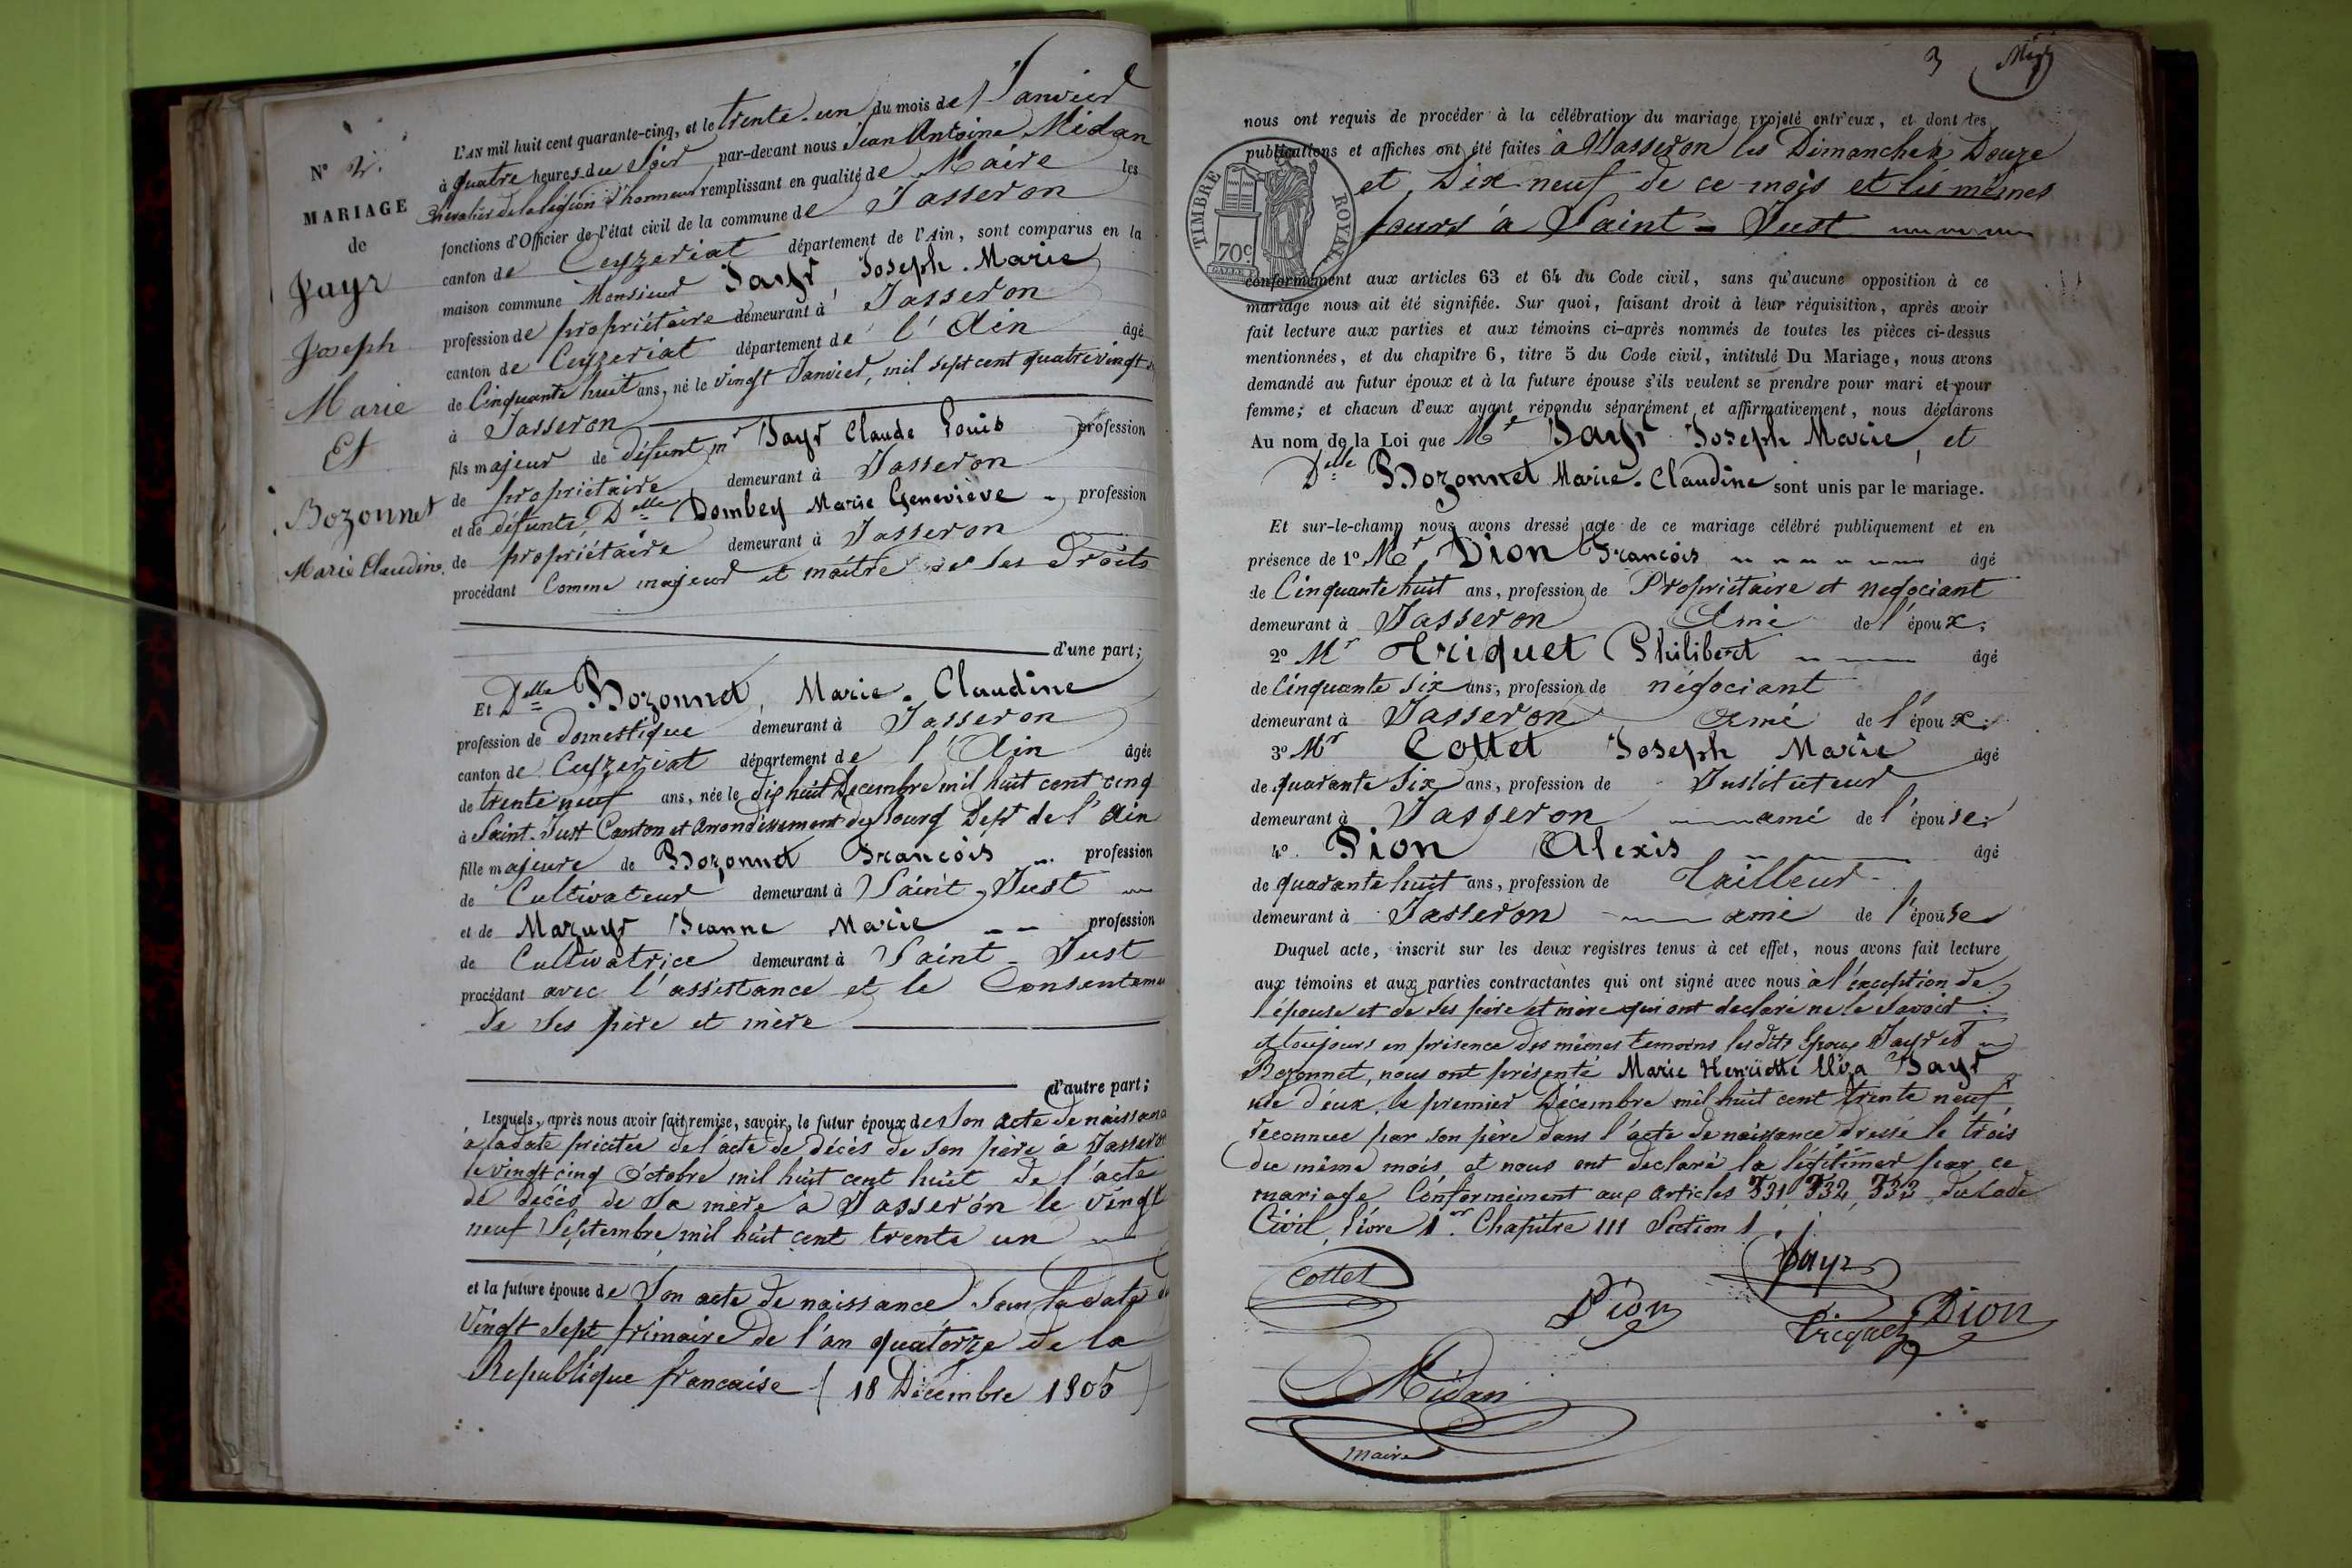 N° 2.
MARIAGE
de
Jayr
Joseph
Marie
Et
Bozonnet
Marie Claudine.
L'AN mil huit cent quarante-cinq, et le trente-un du mois de Janvier
à quatre heures du Soir par-devant nous Jean Antoine Midan
Chevalier de la légion d'honneur remplissant en qualité de Maire les
fonctions d'Officier de l'état civil de la commune de Jasseron
canton de Ceyzeriat département de l'Ain, sont comparus en la
maison commune Monsieur Jayr, Joseph-Marie
profession de propriétaire demeurant à Jasseron
canton de Ceyzeriat département de l'Ain âgé
de Cinquante huit ans, né le vingt Janvier, mil sept cent quatrevingt
à Jasseron
fils majeur de défunt mr Jayr Claude Louis profession
de propriétaire demeurant à Jasseron
et de défunte Delle Dombey Marie Geneviève - profession
de propriétaire demeurant à Jasseron
procédant Comme majeur et maître de ses Droits
d'une part;
Et Delle Bozonnet, Marie-Claudine
profession de domestique demeurant à Jasseron
canton de Ceyzeriat département de l'Ain âgée
de trente neuf ans, née le dix huit Decembre mil huit cent cinq
à Saint-Just Canton et arrondissement de Bourg Dept de l'Ain
fille majeure de Bozonnet François profession
de Cultivateur demeurant à Saint-Just
et de Mazuyr Jeanne Marie profession
de Cultivatrice demeurant à Saint-Just
procédant avec l'assistance et le Consenteme
de ses père et mère
d'autre part;
Lesquels, après nous avoir fait remise, savoir, le futur époux de son acte de naissance
à la date précitée de l'acte de décès de son père à Jasseron
le vingt cinq Octobre mil huit cent huit de l'acte
de décès de sa mère à Jasseron le vingt
neuf Septembre mil huit cent trente un
et la future épouse de son acte de naissance sous la date du
vingt sept frimaire de l'an quatorze de la
Republique francaise (18 Décembre 1805)
3
nous ont requis de procéder à la célébration du mariage projeté entr'eux, et dont les
publications et affiches ont été faites à Jasseron les Dimanches Douze
et Dix-neuf de ce mois et les mêmes
jours à Saint-Just
TIMBRE ROYAL
70c
conformément aux articles 63 et 64 du Code civil, sans qu'aucune opposition à ce
mariage nous ait été signifiée. Sur quoi, faisant droit à leur réquisition, après avoir
fait lecture aux parties et aux témoins ci-après nommés de toutes les pièces ci-dessus
mentionnées, et du chapitre 6, titre 5 du Code civil, intitulé Du Mariage, nous avons
demandé au futur époux et à la future épouse s'ils veulent se prendre pour mari et pour
femme; et chacun d'eux ayant répondu séparément et affirmativement, nous déclarons
Au nom de la Loi que Mr Jayr Joseph Marie, et
Delle Bozonnet Marie-Claudine sont unis par le mariage.
Et sur-le-champ nous avons dressé acte de ce mariage célébré publiquement et en
présence de 1° Mr Dion François âgé
de Cinquante huit ans, profession de Propriétaire et négociant
demeurant à Jasseron Ami de l'époux;
2° Mr Triquet Philibert âgé
de Cinquante Six ans, profession de négociant
demeurant à Jasseron Ami de l'époux;
3° Mr Cottet Joseph Marie âgé
de quarante Six ans, profession de Instituteur
demeurant à Jasseron ami de l'épouse;
4° Pion Alexis âgé
de quarante huit ans, profession de Tailleur
demeurant à Jasseron ami de l'épouse
Duquel acte, inscrit sur les deux registres tenus à cet effet, nous avons fait lecture
aux témoins et aux parties contractantes qui ont signé avec nous à l'exception de
l'épouse et de ses père et mère qui ont declaré ne le savoir
et toujours en présence des mêmes temoins les dits Epoux Jayr et
Bozonnet, nous ont présenté Marie Henriette Eliza Jayr
née d'eux, le premier Décembre mil huit cent trente neuf
reconnue par son père dans l'acte de naissance dressé le trois
du même mois et nous ont declaré la légitimer par ce
mariage Conformément aux articles 331 332 333 du Code
Civil, livre 1er Chapitre III Section 1.
Cottet
Pion
Jayr
Triquet
Dion
Midan
maire